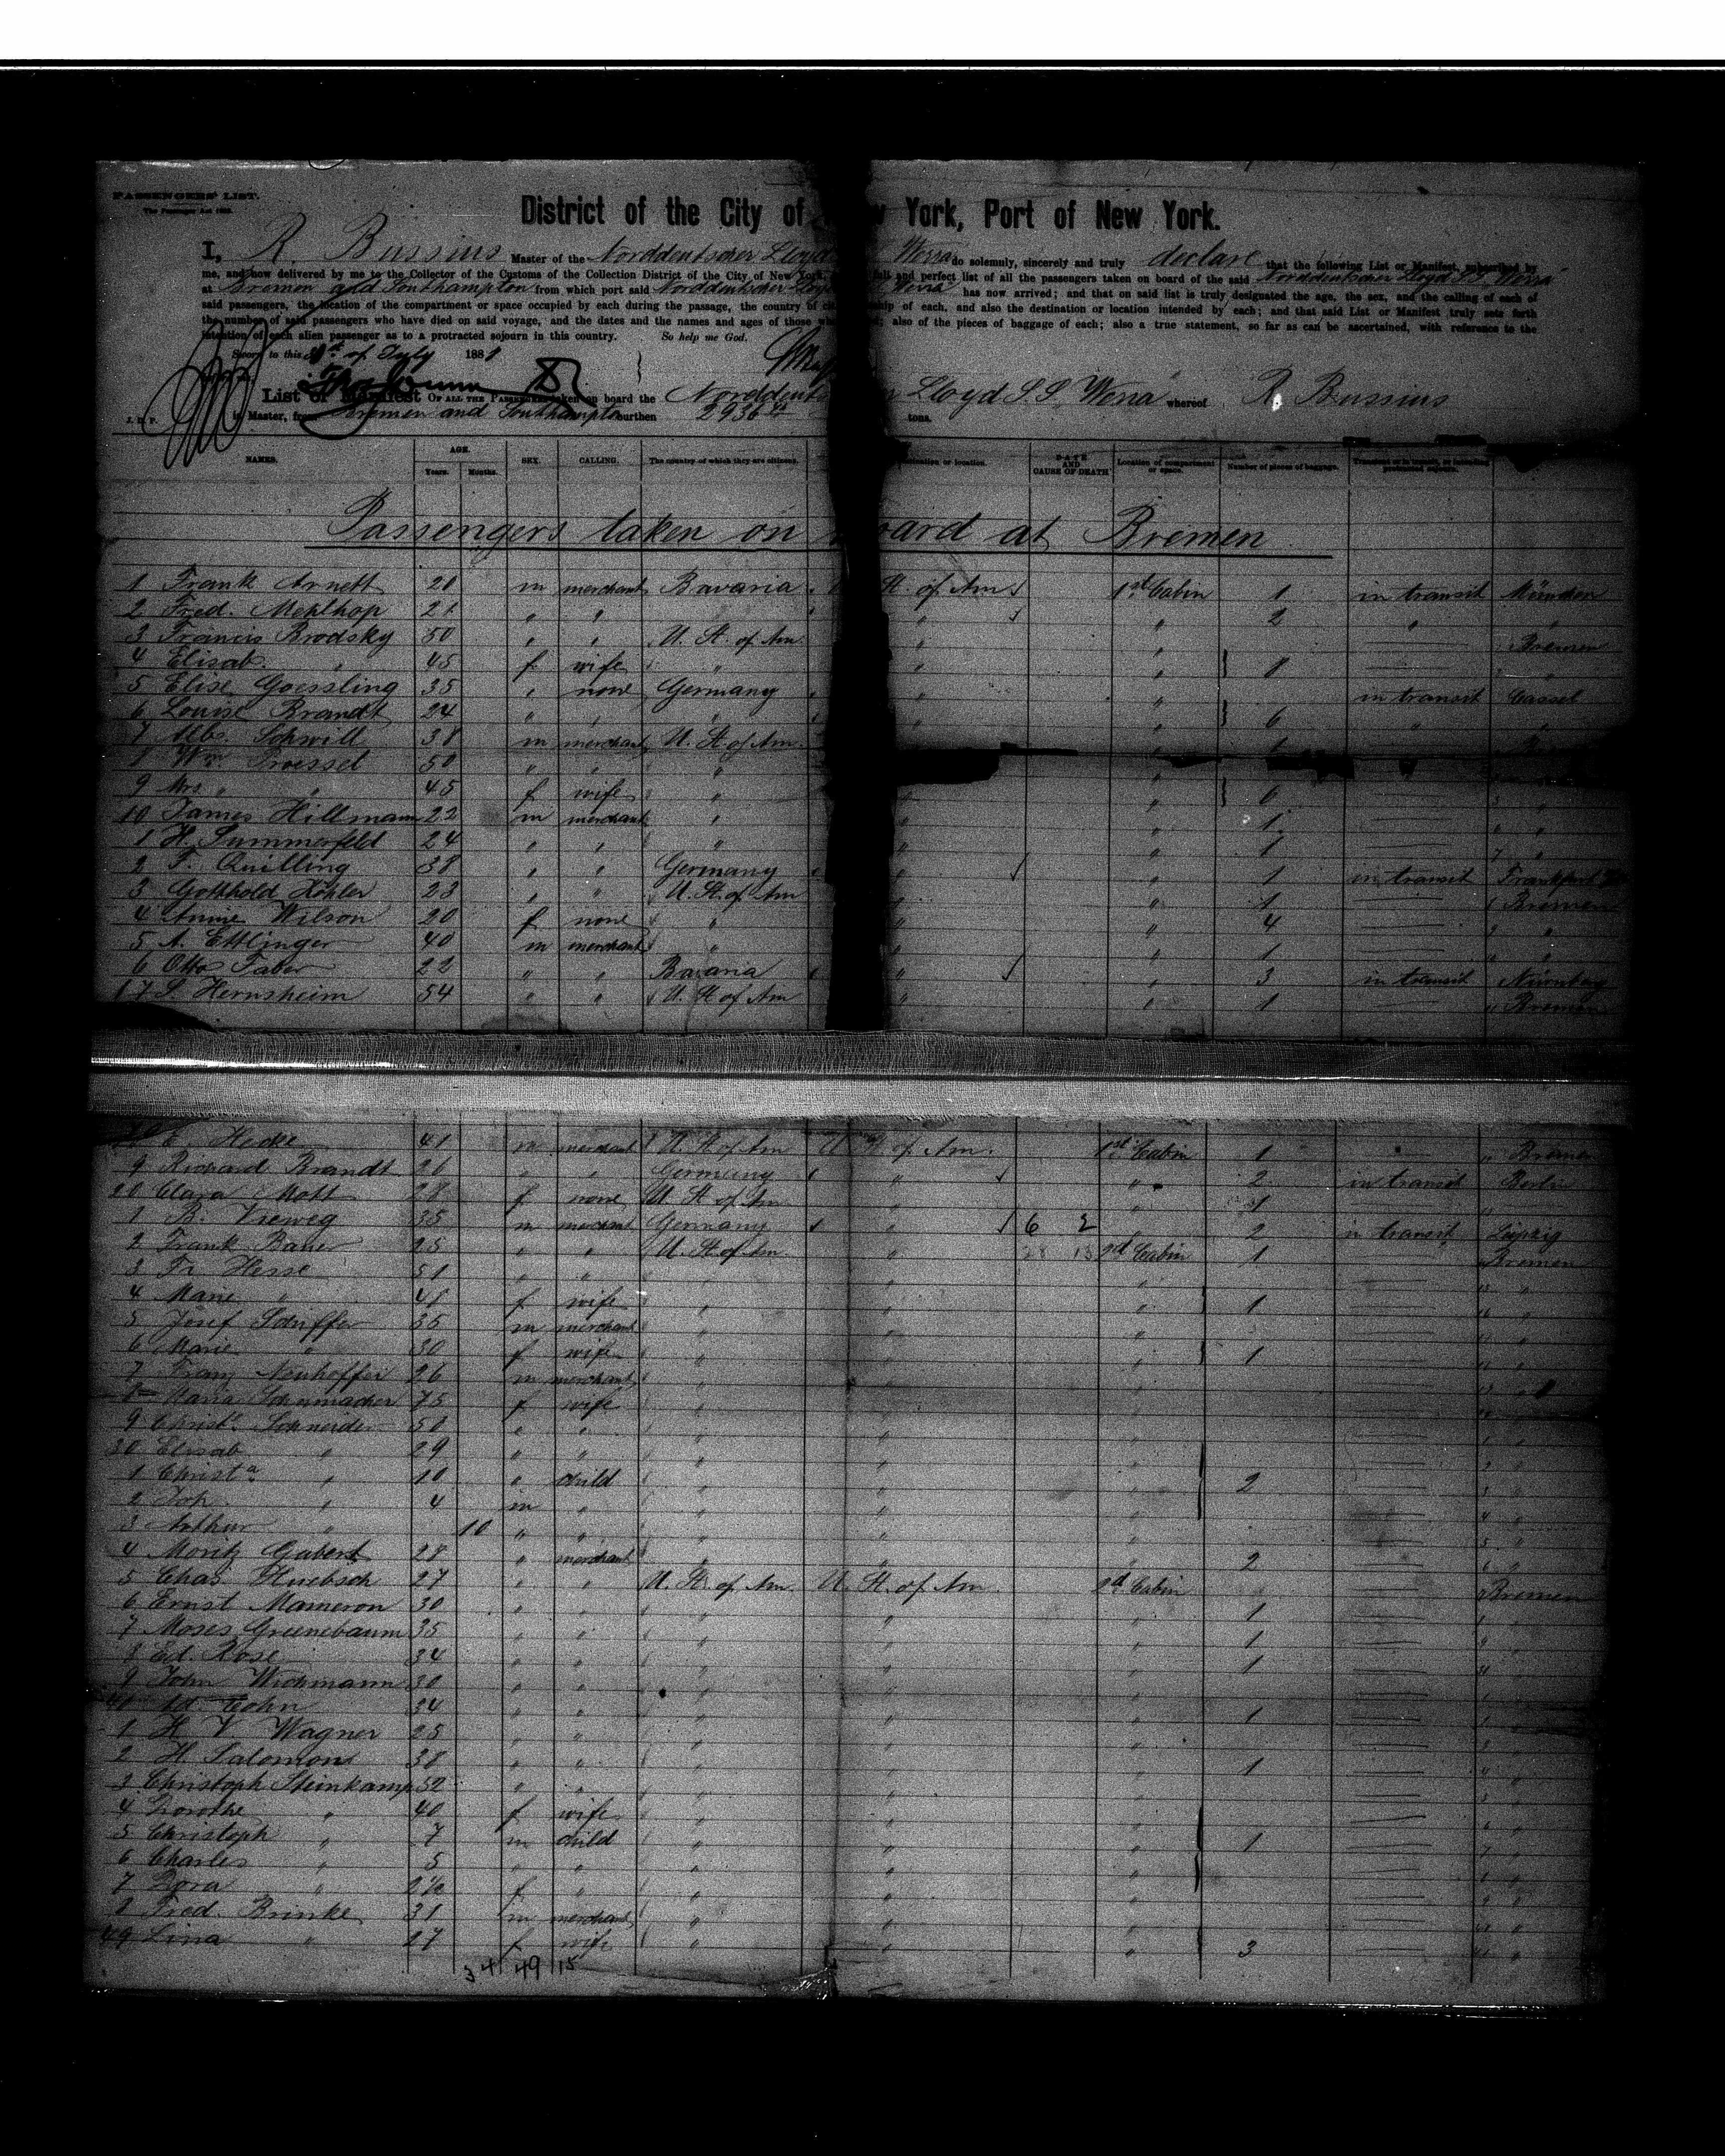 PASSENGERS' LIST.
District of the City of York, Port of New York.
I, R. Bussius Master of the Norddeutscher Lloyd Werra do solemnly, sincerely and truly declare that the following List or Manifest, subscribed by
me, and now delivered by me to the Collector of the Customs of the Collection District of the City of New York, full and perfect list of all the passengers taken on board of the said Norddeutscher Lloyd S.S. Werra
at Bremen and Southampton from which port said Norddeutscher Lloyd Werra has now arrived; and that on said list is truly designated the age, the sex, and the calling of each of
said passengers, the location of the compartment or space occupied by each during the passage, the country of of each, and also the destination or location intended by each; and that said List or Manifest truly sets forth
the number of said passengers who have died on said voyage, and the dates and the names and ages of those also of the pieces of baggage of each; also a true statement, so far as can be ascertained, with reference to the
intention of each alien passenger as to a protracted sojourn in this country. So help me God.
Sworn to this of July 188
List or Manifest OF ALL THE PASSENGERS taken on board the Lloyd S.S. Werra whereof R. Bussius
is Master, from Bremen and Southampton burthen 2936 tons.
NAMES. AGE. Years. Months. SEX. CALLING. The country of which they are citizens. DATE AND CAUSE OF DEATH Location of compartment or space. Number of pieces of baggage.
Passengers taken on board at Bremen
1 Frank Arnett 20 m merchant Bavaria St. of Am. 1st Cabin 1 in transit München
2 Fred. Mehlhop 21 " " " " 2 " "
3 Francis Brodsky 50 " " U. St. of Am. " " Bremen
4 Elisab. " 45 f wife " " " 8 "
5 Elise Goessling 35 " none Germany " " in transit Cassel
6 Louise Brandt 24 " " " " " 6 " "
7 Alb. Schwill 38 m merchant U. St. of Am. "
8 Wm Proessel 50 " " " "
9 Mrs. " 45 f wife " " " 6 "
10 James Hillmann 22 m merchant " " " 1 "
1 H. Summerfeld 24 " " " " 1 "
2 F. Quilling 38 " " Germany " " 1 in transit Frankfurt
3 Gotthold Kohler 23 " " U. St. of Am " " 1 Bremen
4 Annie Wilson 20 f none " " " 4 "
5 A. Ettlinger 40 m merchant " " " 1 "
6 Otto Faber 22 " " Bavaria " " 3 in transit Nürnberg
17 S. Hernsheim 54 " " U. St. of Am " " 1 Bremen
E. Hecke 41 m merchant U. St. of Am U. St. of Am. 1st Cabin 1 " Bremen
9 Richard Brandt 26 " " Germany " " 2 in transit Berlin
20 Clara Mott 28 f none U. St. of Am " 1 "
1 B. Vieweg 35 m merchant Germany " 6 2 " 2 in transit Leipzig
2 Frank Bauer 25 " " U. St. of Am " 2d Cabin 1 Bremen
3 Fr. Hesse 51 " " " " " "
4 Marie " 41 f wife " " " 1 "
5 Josef Schiffer 35 m merchant " " " "
6 Marie " 30 f wife " " " 1 "
7 Franz Neuhoffer 26 m merchant " " " "
8 Maria Schumacher 75 f wife " " " "
9 Christ. Schneider 50 " " " " " "
30 Elisab. " 29 " " " " " "
1 Christa " 10 " child " " " 2 "
2 Joh. " 4 m " " " " "
3 Arthur " 10 " " " " " "
4 Moritz Gabert 28 " merchant " " " 2 "
5 Chas. Huebsch 27 " " U. St. of Am. U. St. of Am. 2d Cabin Bremen
6 Ernst Mameron 30 " " " " " 1 "
7 Moses Greenebaum 35 " " " " " 1 "
8 Ed. Rose 34 " " " " " 1 "
9 John Wichmann 30 " " " " " "
Cohn 34 " " " " " 1 "
1 H. V. Wagner 25 " " " " " "
2 H. Salomons 38 " " " " " 1 "
3 Christoph Steinkamp 50 " " " " " "
4 Dorothe " 40 f wife " " " "
5 Christoph " 7 m child " " " 1 "
6 Charles " 5 " " " " " "
7 Dora " 2½ f " " " " "
8 Fred. Brinke 31 m merchant " " " "
49 Lina " 27 f wife " " " 3 "
34 49 15